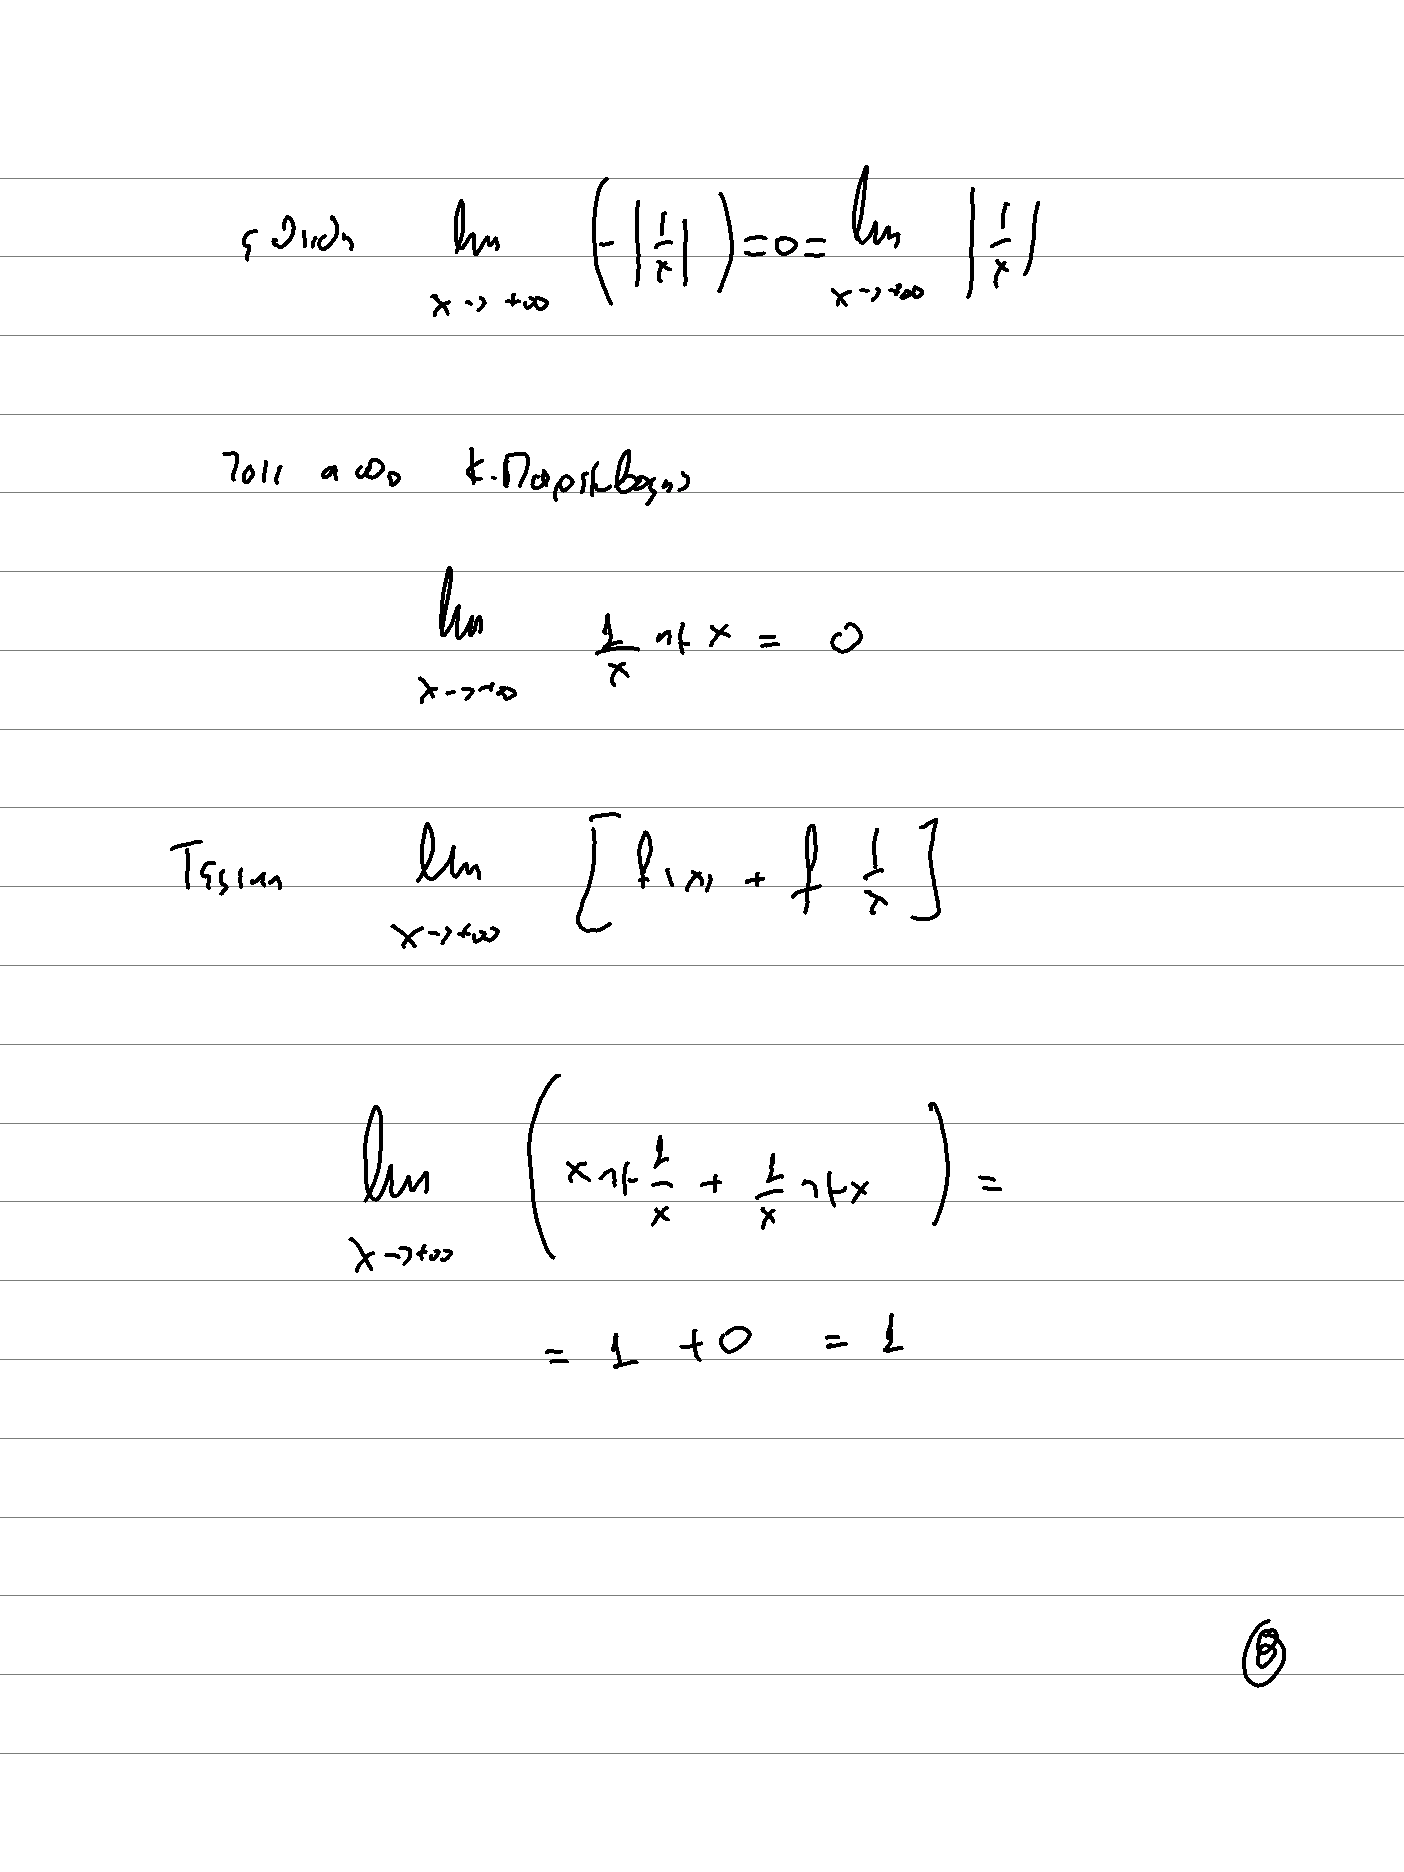 επειδή lim x→+∞ (-|1/x|) = 0 = lim x→+∞ |1/x|
τότε από Κ.Παρεμβολής
lim x→+∞ 1/x ημ x = 0
Τελικά lim x→+∞ [f(x) + f 1/x]
lim x→+∞ (x ημ 1/x + 1/x ημ x) =
= 1 + 0 = 1